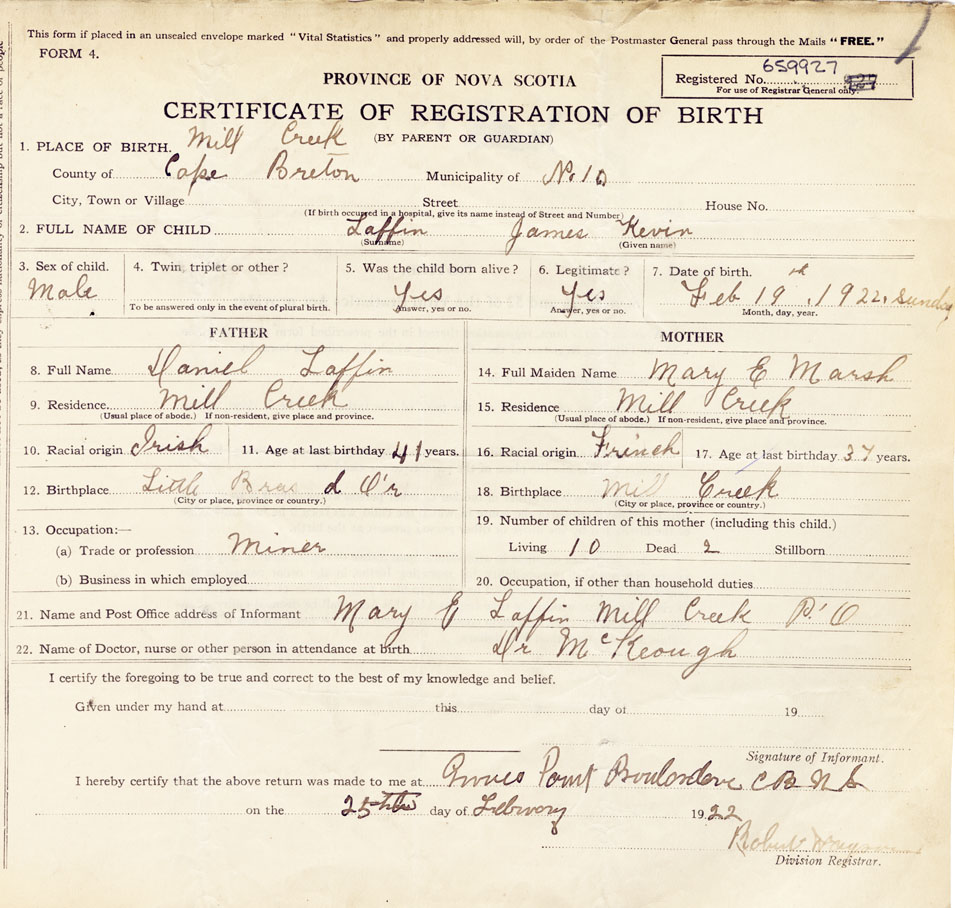 This form if placed in an unsealed envelope marked "Vital Statistics" and properly addressed will, by order of the Postmaster General pass through the Mails "FREE."
FORM 4.
PROVINCE OF NOVA SCOTIA
Registered No. 659927
For use of Registrar General only.
CERTIFICATE OF REGISTRATION OF BIRTH
(BY PARENT OR GUARDIAN)
1. PLACE OF BIRTH. Mill Creek
County of Cape Breton Municipality of No. 10
City, Town or Village Street House No.
(If birth occurred in a hospital, give its name instead of Street and Number)
2. FULL NAME OF CHILD Laffin James Kevin
(Surname) (Given name)
3. Sex of child. 4. Twin, triplet or other? 5. Was the child born alive? 6. Legitimate? 7. Date of birth.
Male Yes Yes Feb 19th, 1922, Sunday
To be answered only in the event of plural birth. Answer, yes or no. Answer, yes or no. Month, day, year.
FATHER
8. Full Name Daniel Laffin
9. Residence Mill Creek
(Usual place of abode.) If non-resident, give place and province.
10. Racial origin Irish 11. Age at last birthday 41 years.
12. Birthplace Little Bras d O'r
(City or place, province or country.)
13. Occupation:—
(a) Trade or profession Miner
(b) Business in which employed
MOTHER
14. Full Maiden Name Mary E Marsh
15. Residence Mill Creek
(Usual place of abode.) If non-resident, give place and province.
16. Racial origin French 17. Age at last birthday 37 years.
18. Birthplace Mill Creek
(City or place, province or country.)
19. Number of children of this mother (including this child.)
Living 10 Dead 2 Stillborn
20. Occupation, if other than household duties
21. Name and Post Office address of Informant Mary E Laffin Mill Creek P.O
22. Name of Doctor, nurse or other person in attendance at birth Dr McKeough
I certify the foregoing to be true and correct to the best of my knowledge and belief.
Given under my hand at this day of 19
Signature of Informant.
I hereby certify that the above return was made to me at Point Boularderie C B N S
on the 25th day of February 1922
Robert
Division Registrar.